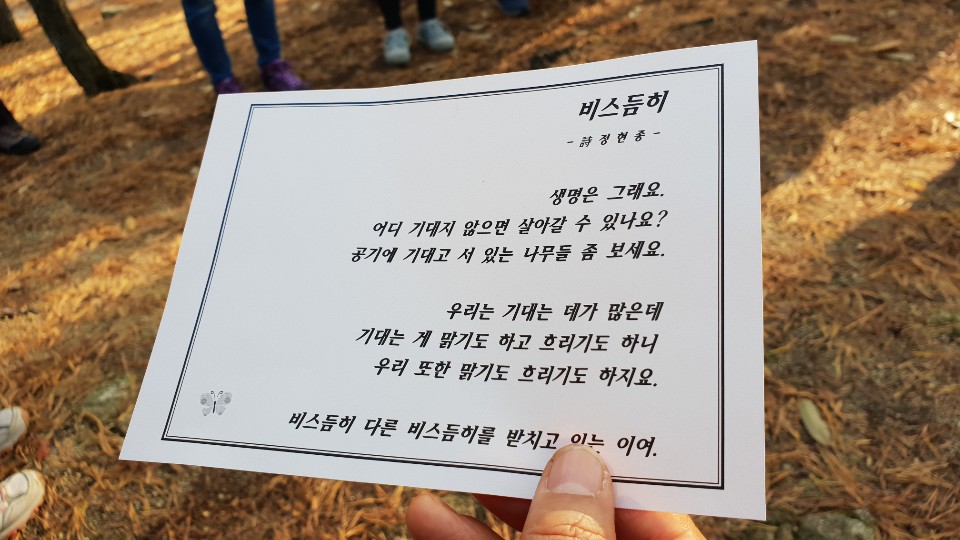 비스듬히
- 詩 정 현 종 -
생명은 그래요.
어디 기대지 않으면 살아갈 수 있나요?
공기에 기대고 서 있는 나무들 좀 보세요.
우리는 기대는 데가 많은데
기대는 게 맑기도 하고 흐리기도 하니
우리 또한 맑기도 흐리기도 하지요.
비스듬히 다른 비스듬히를 받치고 있는 이여.